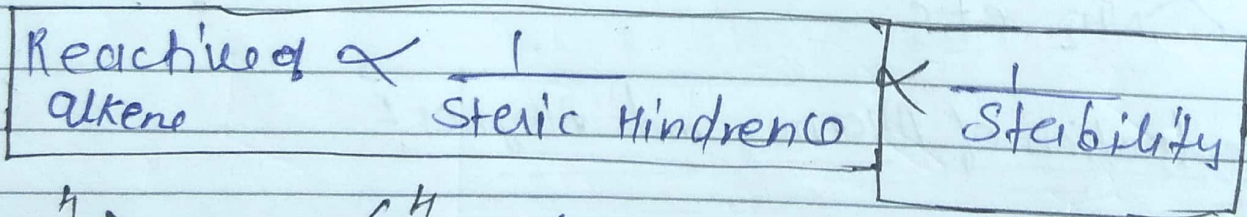 Reactive of ∝ 1 ∝ 1
alkene Steric Hindrence Stability
H H